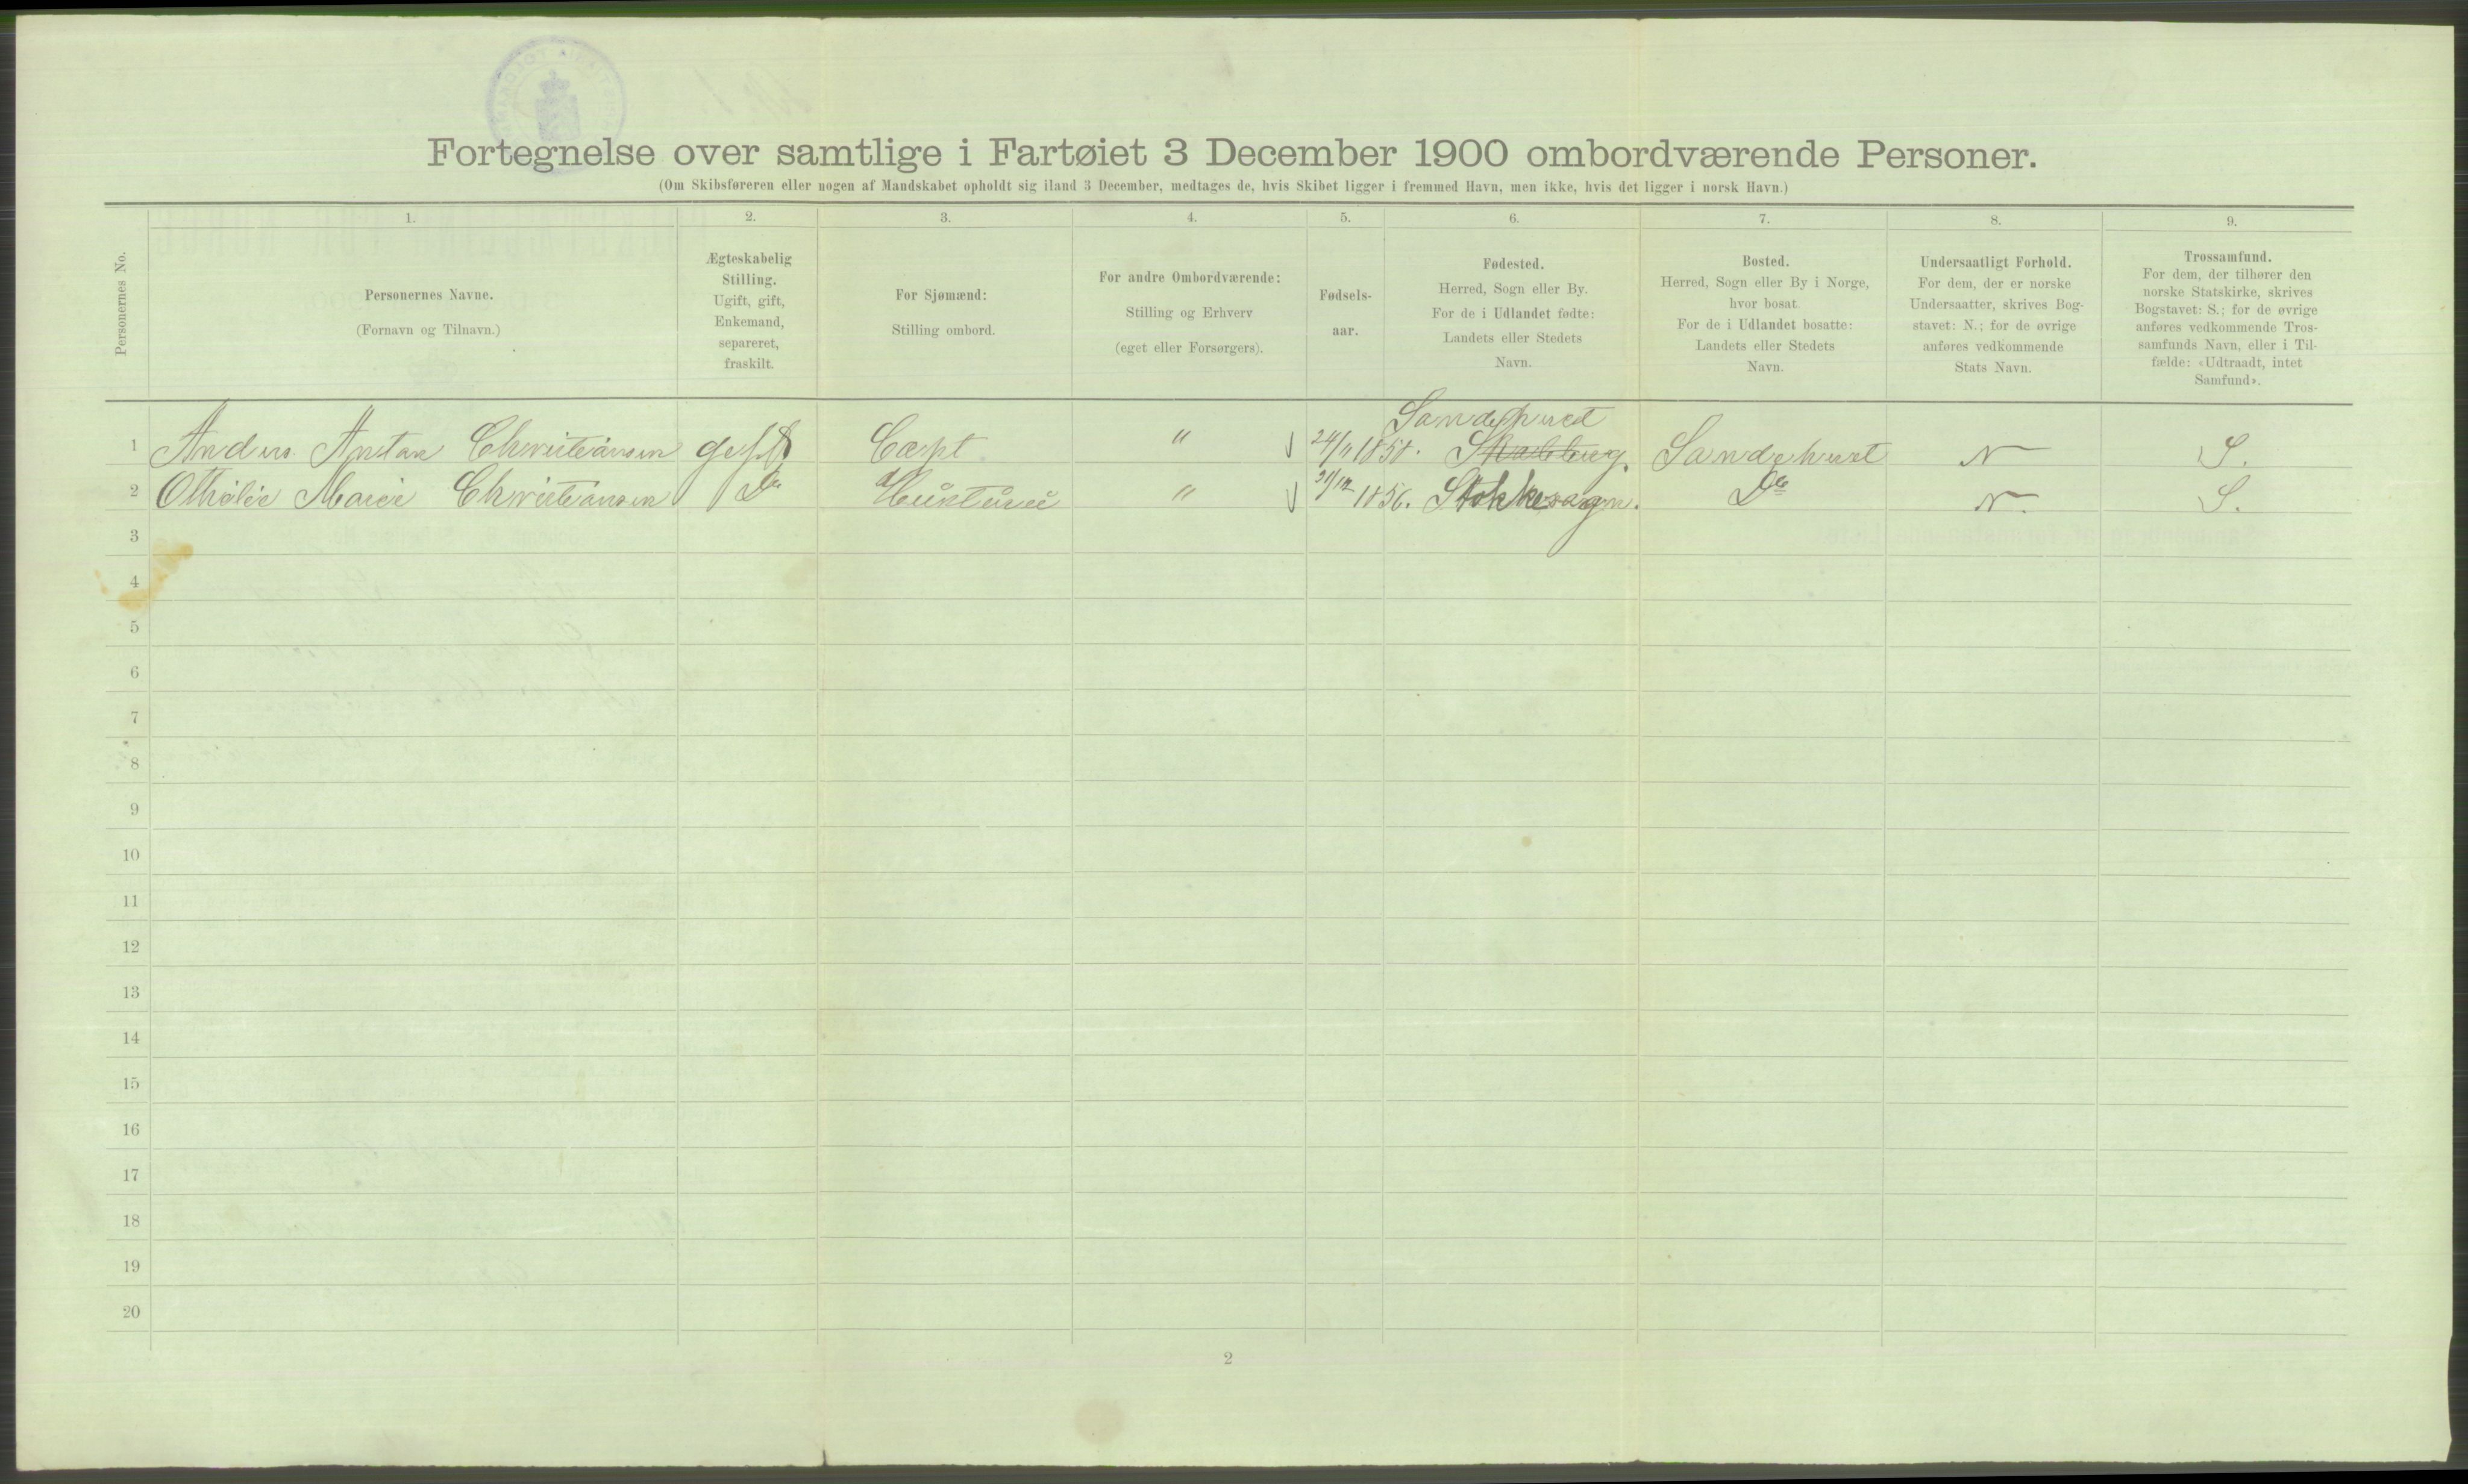 Fortegnelse over samtlige i Fartøiet 3 December 1900 ombordværende Personer.
(Om Skibsføreren eller nogen af Mandskabet opholdt sig iland 3 December, medtages de, hvis Skibet ligger i fremmed Havn, men ikke, hvis det ligger i norsk Havn.)
Personernes No.
1.
Personernes Navne.
(Fornavn og Tilnavn.)
2.
Ægteskabelig
Stilling.
Ugift, gift,
Enkemand,
separeret,
fraskilt.
3.
For Sjømænd:
Stilling ombord.
4.
For andre Ombordværende:
Stilling og Erhverv
(eget eller Forsørgers).
5.
Fødsels-
aar.
6.
Fødested.
Herred, Sogn eller By.
For de i Udlandet fødte:
Landets eller Stedets
Navn.
7.
Bosted.
Herred, Sogn eller By i Norge,
hvor bosat.
For de i Udlandet bosatte:
Landets eller Stedets
Navn.
8.
Undersaatligt Forhold.
For dem, der er norske
Undersaatter, skrives Bog-
stavet: N.; for de øvrige
anføres vedkommende
Stats Navn.
9.
Trossamfund.
For dem, der tilhører den
norske Statskirke, skrives
Bogstavet: S.; for de øvrige
anføres vedkommende Tros-
samfunds Navn, eller i Til-
fælde: «Udtraadt, intet
Samfund».
Sandehered
1 Anders Anton Christiansen gift Capt " 24/11 1850. Sandehered N S.
2 Othilie Marie Christiansen Do Hustrue " 1856. Stokkesogn. Do N. S.
3
4
5
6
7
8
9
10
11
12
13
14
15
16
17
18
19
20
2